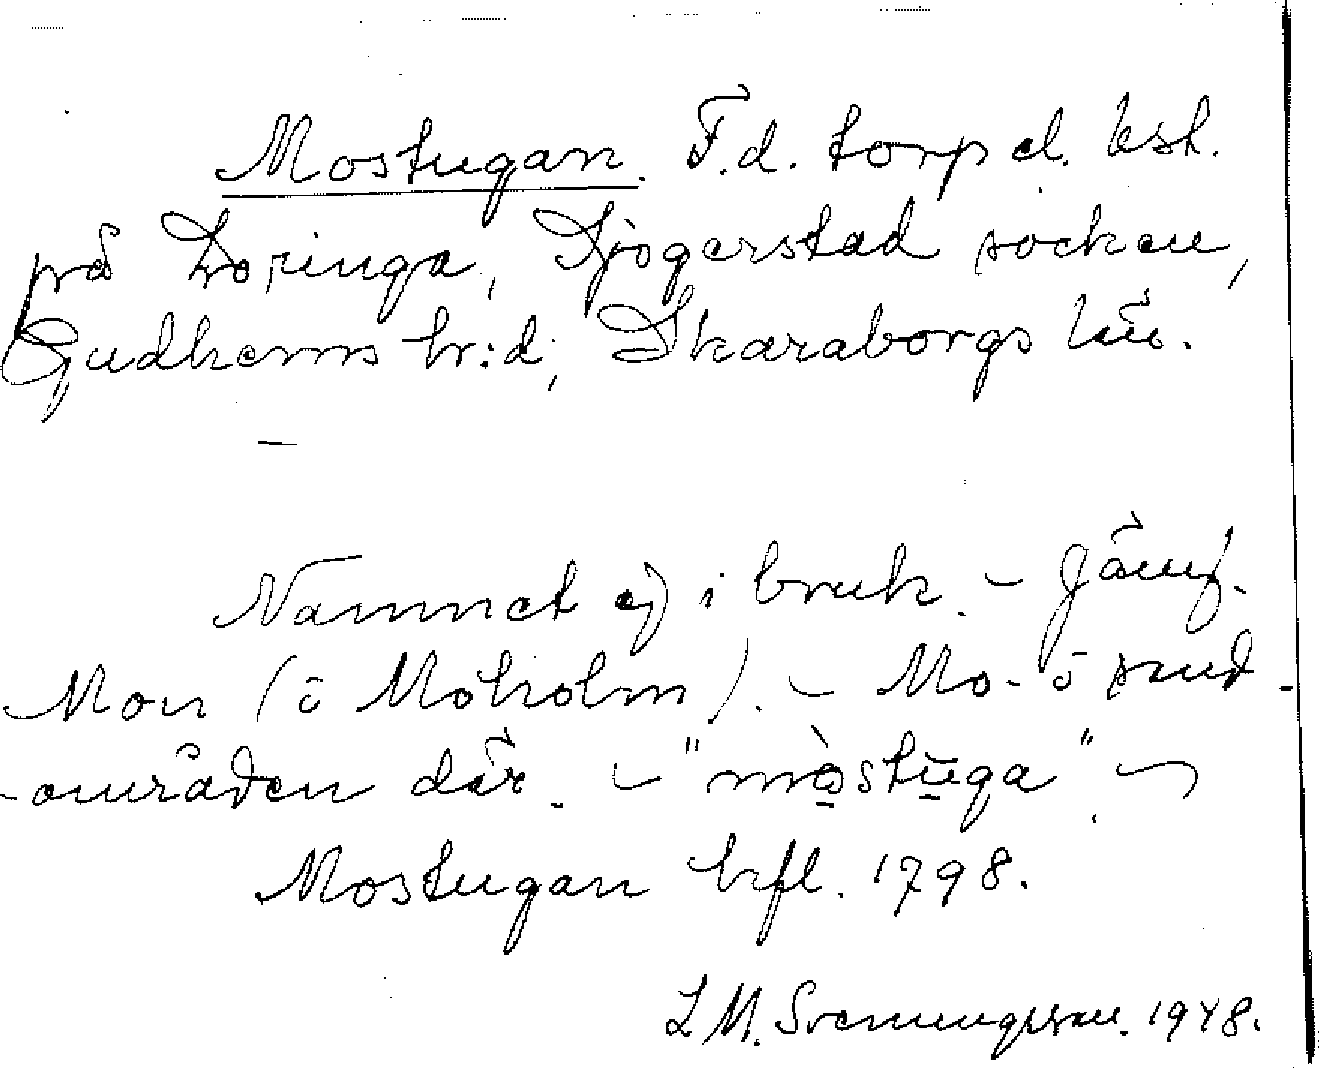 Mostugan. F.d. torp el. bst.
på Loringa, Sjogerstad socken,
Gudhems hr:d, Skaraborgs län.
—
Namnet ej i bruk. – Jämf.
Mon (ö Moholm). – Mo- ö sand-
områden där. – "mòstūga" –
Mostugan hfl. 1798.
L M. Svenungsson. 1948.